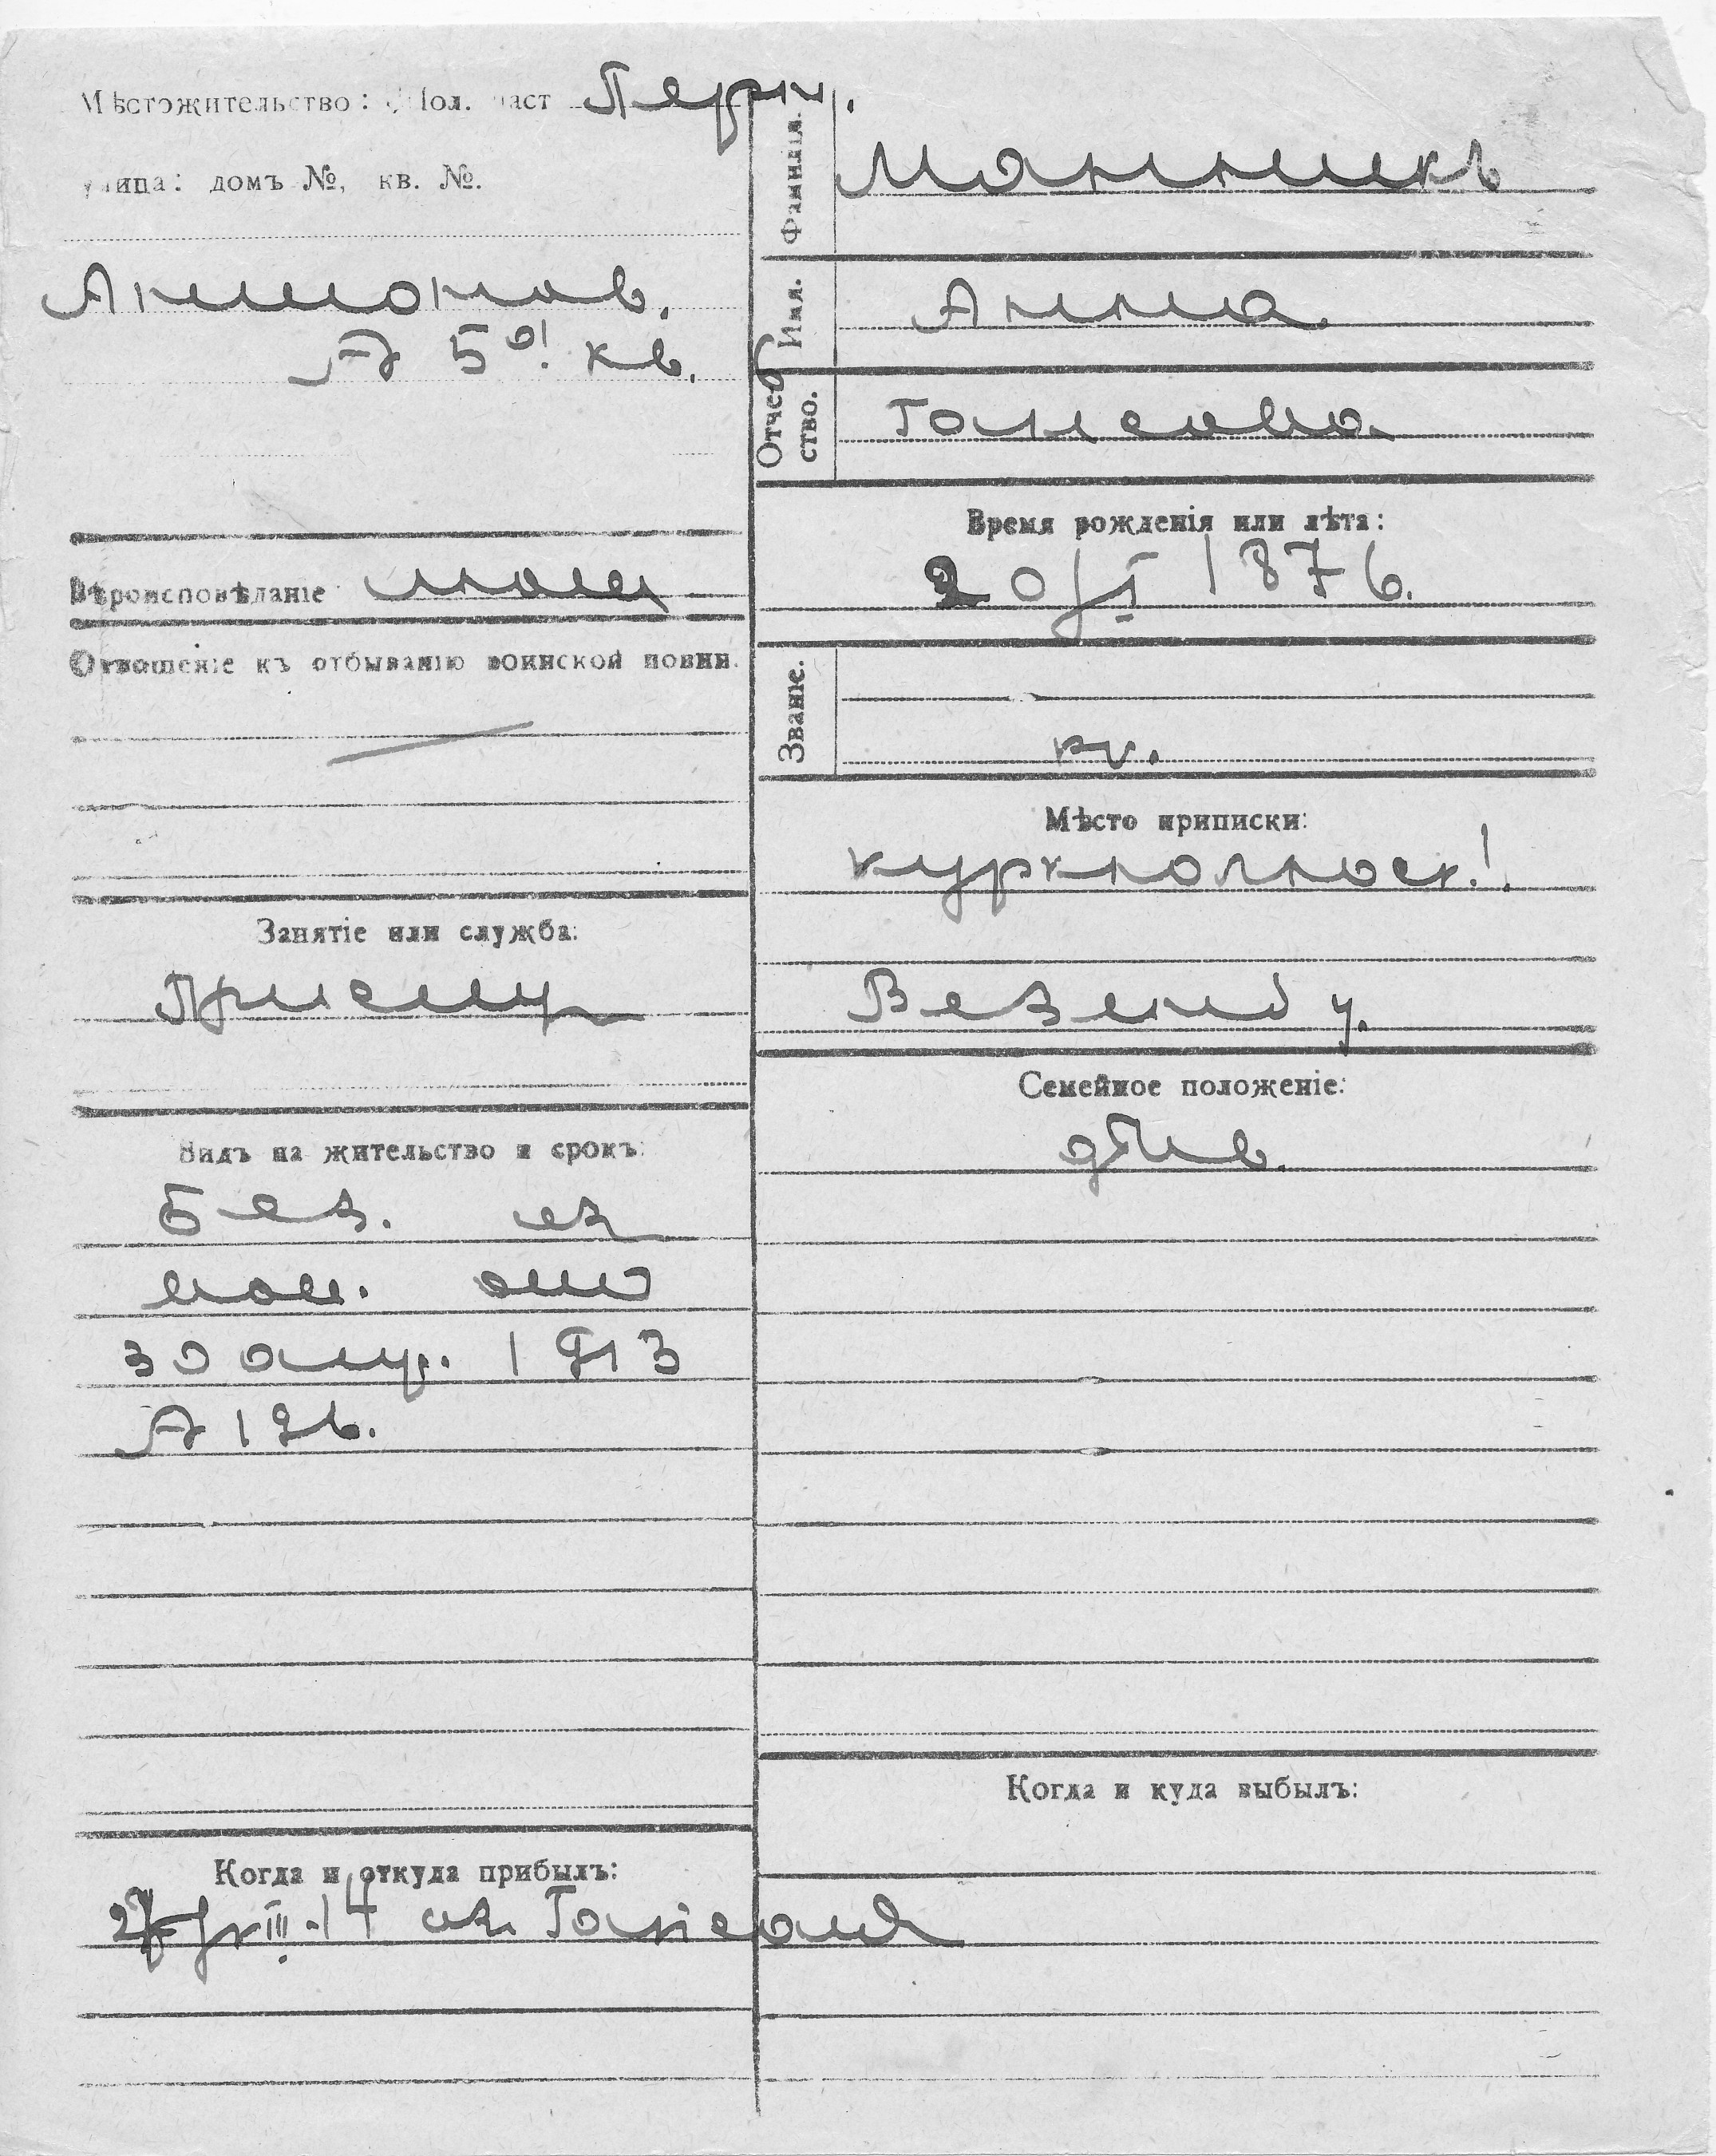 Мѣстожительство: Пол. част Перн.
улица: домъ №, кв. №.
Антонов.
№ 5 кв.
Вѣроисповѣданіе
Отношеніе къ отбыванію воинской повин.
Занятіе или служба:
Видъ на жительство и срокъ:
Без. из
пол. от
30 апр. 1913
№ 196.
Когда и откуда прибылъ:
III 14 из
Фамилія. Манникъ
Имя. Анна
Отчество.
Время рожденія или лѣта:
20/I 1876.
Званіе.
кр.
Мѣсто приписки:
Везенб у.
Семейное положеніе:
дѣв.
Когда и куда выбылъ: